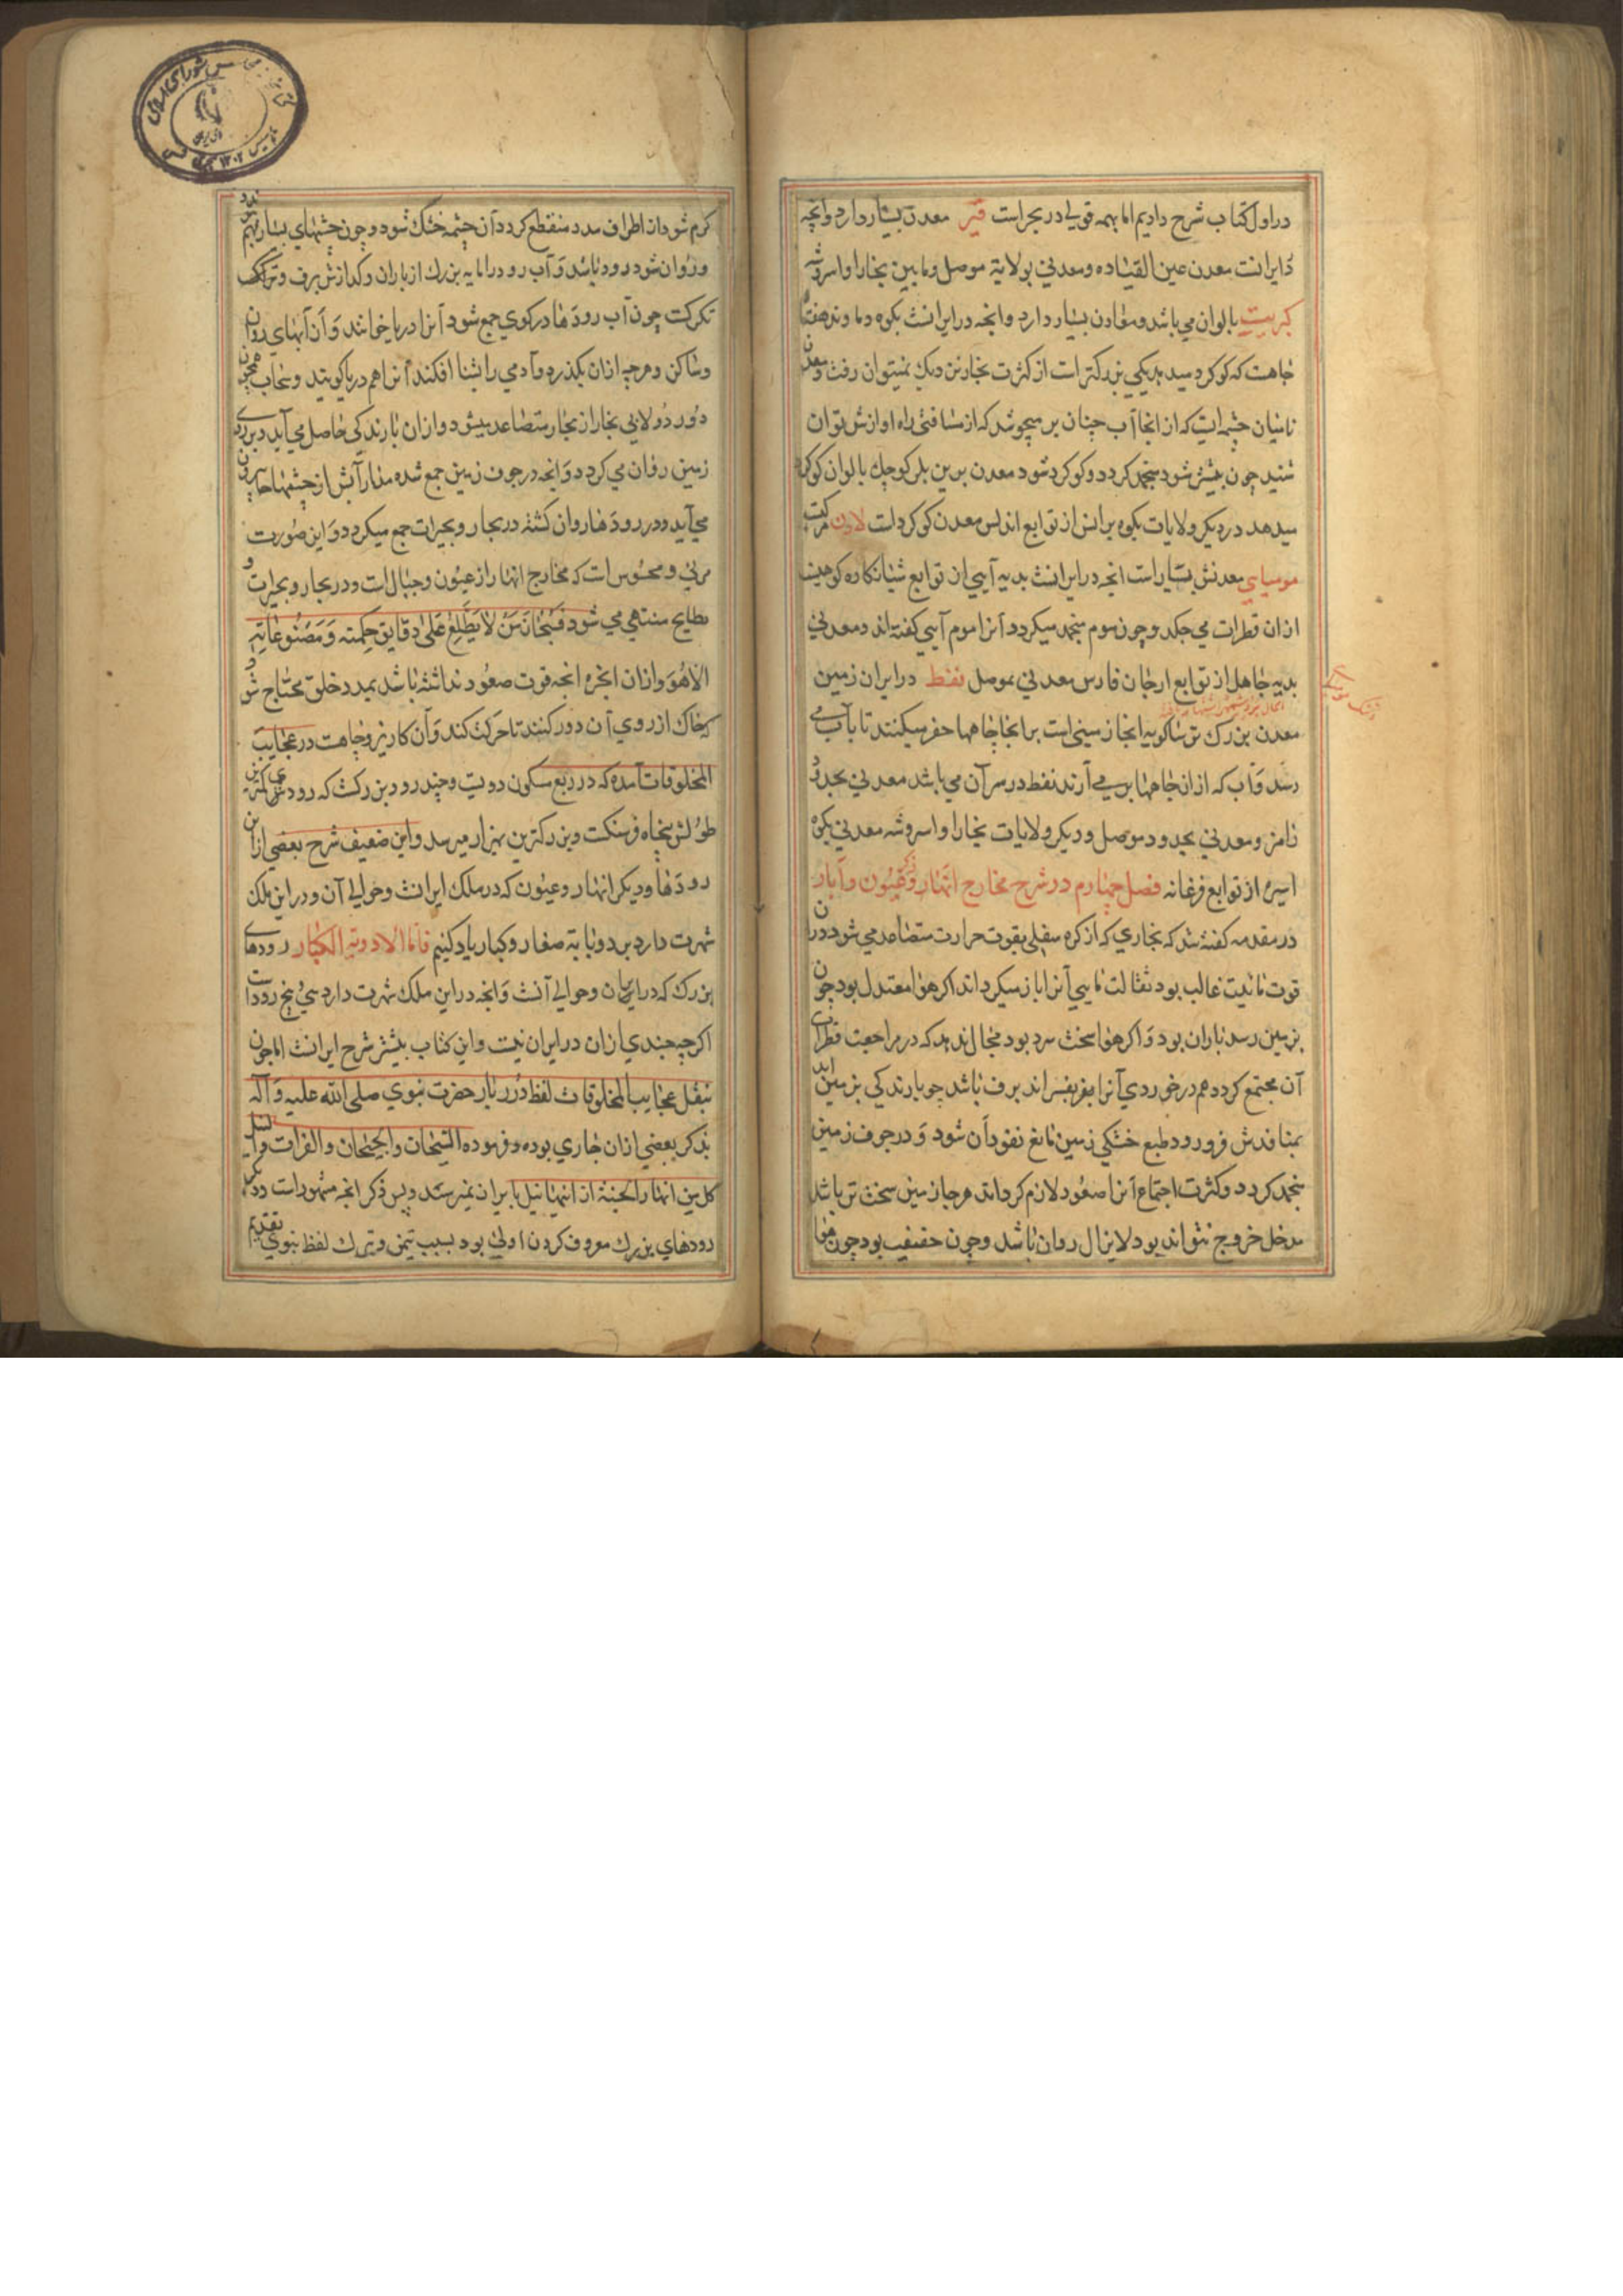 در اول کتاب شرح دادیم اما بهمه قولی در بحر است قیر معدن بسیار دارد وانچه
دایرانست معدن عین القیاده ومعدنی بولایة موصل ومابین بخارا واسروشه
کبریت بالوان می باشد ومعادن بسیار دارد وانچه در ایرانست بکوه دماوند
جاهست که کوکرد سید بدیکی بزرکتر است از کثرت بخار نزدیك نمیتوان رفت ومعدن
نامیان چشمه ایست که از انجا آب چنان بر میجوشد که از مسافتی راه اوازش توان
شنید چون بیشتر شود منجمد کردد وکوکرد شود معدن بالوان کوکرد
میدهد در دیکر ولایات بکوه برانس از توابع اندلس معدن کوکرد است لادن مرکب
مومیای معدنش بسیار است انچه در ایرانست بدیه آیی از توابع شبانکاره کوهیست
ازان قطرات می چکد وچون موم منجمد میکردد آنرا موم آیی کفته اند ومعدنی
بدیه جاهل از توابع ارجان فارس معدنی بموصل نفط در ایران زمین
معدن بزرك بباکویه انجا زمینی است بر انجا چاهها حفر میکنند تا بآب می
رسد وآب که از ان چاهها برمی آرند نفط در سر آن می باشد معدنی بحدود
نامز ومعدنی بحدود موصل ودیکر ولایات بخارا واسروشه معدنی بکوه
اسره از توابع فرغانه فصل چهارم در شرح مخارج انهار وذکر عیون وآبار
در مقدمه کفته شد که بخاری که از کره سفلی بقوت حرارت متصاعد می شود دران
قوت مائیت غالب بود ثقالت مایی آنرا باز میکرداند اکر هوا معتدل بود چون
بزمین رسد باران بود واکر هوا سخت سرد بود مجال ندهد که در مراجعت قطرات
آن مجتمع کردد هم در خوردی آنرا بفسراند برف باشد چو بارندکی بزمین اید
بمنافذش فرو رود طبع خشکی زمین مانع نفوذ آن شود ودر جوف زمین
منجمد کردد وکثرت اجتماع آنرا صعود لازم کرداند هر جا زمین سخت تر باشد
مدخل خروج نتواند بود لایزال روان باشد وچون خفیف بود چون هوا
کرم شود از اطراف مدد منقطع کردد آن چشمه خشك شود وچون چشمهای بسیار بهم
وروان شود رود باشد وآب رود را مایه بزرك از باران وکدازش برف وتکرك
تکرکست چون آب رودها در کوی جمع شود آنرا دریا خوانند وآن آبهای روان
وساکن وهرچه ازان بکذرد وآدمی را بشنا افکند آنرا هم دریا کویند وسحاب همچون
دور دولابی بخار از بحار متصاعد میشود وازان بارندکی حاصل می آید وبر روی
زمین روان می کردد وانچه در جوف زمین جمع شده از چشمها بیرون
می آید ودر رودها روان کشته در بحار وبحیرات جمع میکردد واین صورت
مرئی ومحسوس است که مخارج انهار از عیون وجبال است ودر بحار وبحیرات و
بطایح منتهی می شود فسبحان من لا یطلع علی دقایق حکمته ومصنوعاته
الا هو وازان ابخره انچه قوت صعود نداشته باشد بمدد خلق محتاج شود
که خاك از روی آن دور کنند تا حرکت کند وآن کاریز وچاهست در عجایب
المخلوقات آمده که در ربع مسکون دویست وچند رود بزرکست که رودی کمترین
طولش پنجاه فرسنکست وبزرکترین بهزار میرسد واین ضعیف شرح بعضی ازان
رودها ودیکر انهار وعیون که در ملك ایرانست وحوالی آن ودر این ملك
شهرت دارد بر دو بابه صغار وکبار یاد کنیم فاما الاودیة الکبار رودهای
بزرك که در ایران وحوالی آنست وانچه در این ملك شهرت دارد سی وپنج رود است
اکرچه چندی ازان در ایران نیست واین کتاب بیشتر شرح ایرانست اما چون
بنقل عجایب المخلوقات لفظ درر بار حضرت نبوی صلی الله علیه وآله
بذکر بعضی ازان جاری بوده وفرموده السیحان والجیحان والفرات والنیل
کل من انهار الجنة از اینها نیل بایران نمیرسد وپس ذکر انچه مشهور است
رودهای بزرك معروف کردن اولی بود بسبب تیمن وتبرك لفظ نبوی تقدیم